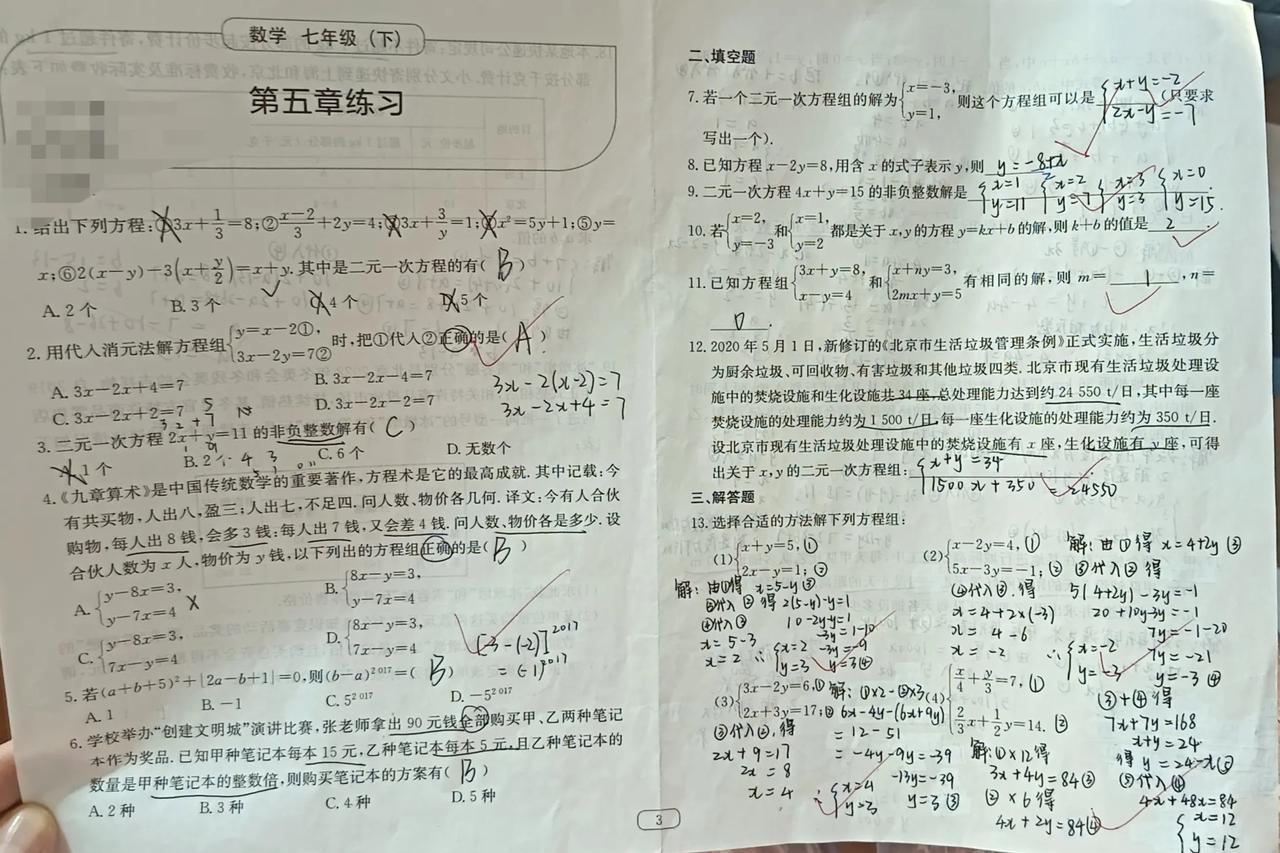 数学 七年级（下）
第五章练习
1. 给出下列方程:①3x+1/3=8;②(x-2)/3+2y=4;③3x+3/y=1;④x²=5y+1;⑤y=
x;⑥2(x-y)-3(x+y/2)=x+y.其中是二元一次方程的有( B )
A. 2个 B. 3个 C. 4个 D. 5个
2. 用代人消元法解方程组{y=x-2①, 3x-2y=7②时,把①代人②正确的是( A )
A. 3x-2x+4=7 B. 3x-2x-4=7
3x-2(x-2)=7
C. 3x-2x+2=7 D. 3x-2x-2=7
3x-2x+4=7
3. 二元一次方程 2x+y=11 的非负整数解有( C )
A. 1个 B. 2个 C. 6个 D. 无数个
4.《九章算术》是中国传统数学的重要著作,方程术是它的最高成就.其中记载:今
有共买物,人出八,盈三;人出七,不足四.问人数、物价各几何.译文:今有人合伙
购物,每人出8钱,会多3钱;每人出7钱,又会差4钱.问人数、物价各是多少.设
合伙人数为x人,物价为y钱,以下列出的方程组正确的是( B )
A. {y-8x=3, y-7x=4 B. {8x-y=3, y-7x=4
C. {y-8x=3, 7x-y=4 D. {8x-y=3, 7x-y=4
[-3-(-2)]²⁰¹⁷
=(-1)²⁰¹⁷
5. 若(a+b+5)²+|2a-b+1|=0,则(b-a)²⁰¹⁷=( B )
A. 1 B. -1 C. 5²⁰¹⁷ D. -5²⁰¹⁷
6. 学校举办“创建文明城”演讲比赛,张老师拿出90元钱全部购买甲、乙两种笔记
本作为奖品.已知甲种笔记本每本15元,乙种笔记本每本5元,且乙种笔记本的
数量是甲种笔记本的整数倍,则购买笔记本的方案有( B )
A. 2种 B. 3种 C. 4种 D. 5种
二、填空题
7. 若一个二元一次方程组的解为{x=-3, y=1,则这个方程组可以是{x+y=-2 2x-y=-7(只要求
写出一个).
8. 已知方程 x-2y=8,用含x的式子表示y,则 y=(-8+x)/2
9. 二元一次方程 4x+y=15 的非负整数解是{x=1 y=11 {x=2 y=7 {x=3 y=3 {x=0 y=15.
10. 若{x=2, y=-3 和{x=1, y=2 都是关于x,y的方程y=kx+b的解,则k+b的值是 2 .
11. 已知方程组{3x+y=8, x-y=4 和{x+ny=3, 2mx+y=5 有相同的解,则 m= 1 ,n=
0 .
12. 2020年5月1日,新修订的《北京市生活垃圾管理条例》正式实施,生活垃圾分
为厨余垃圾、可回收物、有害垃圾和其他垃圾四类.北京市现有生活垃圾处理设
施中的焚烧设施和生化设施共34座,总处理能力达到约24 550 t/日,其中每一座
焚烧设施的处理能力约为1 500 t/日,每一座生化设施的处理能力约为350 t/日.
设北京市现有生活垃圾处理设施中的焚烧设施有x座,生化设施有y座,可得
出关于x,y的二元一次方程组: {x+y=34 1500x+350 =24550
三、解答题
13. 选择合适的方法解下列方程组:
(1){x+y=5,① 2x-y=1;②
解:由①得 x=5-y③
③代入②得 2(5-y)-y=1
10-2y-y=1
-3y=1-10
-3y=-9
y=3④
④代入③
x=5-3
x=2
∴{x=2 y=3
(2){x-2y=4,① 5x-3y=-1;②
解:由①得 x=4+2y③
③代入②得
5(4+2y)-3y=-1
20+10y-3y=-1
7y=-1-20
7y=-21
y=-3④
④代入③得
x=4+2×(-3)
x=4-6
x=-2
∴{x=-2 y=-3
(3){3x-2y=6,① 2x+3y=17;②
解:①×2-②×3
6x-4y-(6x+9y)
=12-51
=-4y-9y=-39
-13y=-39
y=3③
③代入②得
2x+9=17
2x=8
x=4
∴{x=4 y=3
(4){x/4+y/3=7,① 2/3x+1/2y=14.②
解:①×12得
3x+4y=84③
②×6得
4x+2y=84④
③+④得
7x+7y=168
x+y=24
得 y=24-x⑤
⑤代入④
4x+48x=84
{x=12 y=12
3